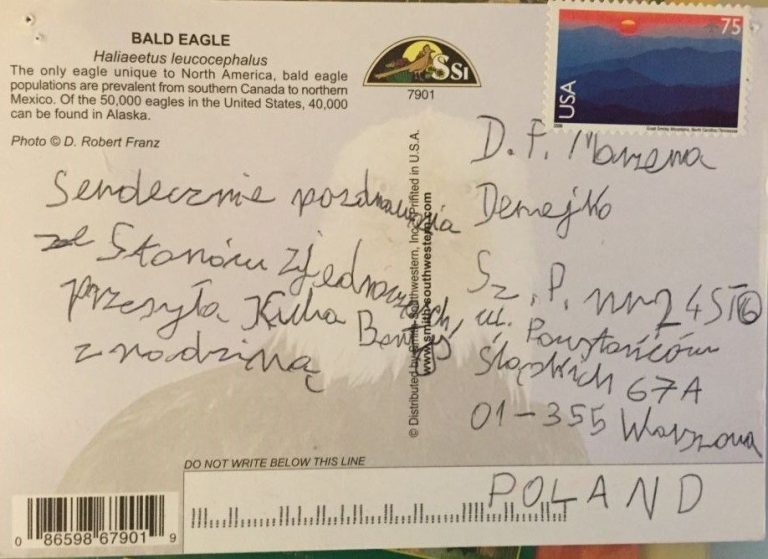 BALD EAGLE
Haliaeetus leucocephalus
The only eagle unique to North America, bald eagle
populations are prevalent from southern Canada to northern
Mexico. Of the 50,000 eagles in the United States, 40,000
can be found in Alaska.
Photo © D. Robert Franz
SSI
7901
75
USA
Great Smoky Mountains, North Carolina-Tennessee
Serdecznie pozdrowienia
ze Stanów Zjednoczonych
przesyła Kuba
z rodziną
© Distributed by Smith-Southwestern, Inc. Printed in U.S.A.
www.smith-southwestern.com
D. P. Marzena
Demejko
Sz. P. nr 245
ul. Powstańców
Śląskich 67A
01-355 Warszawa
POLAND
DO NOT WRITE BELOW THIS LINE
0 86598 67901 9